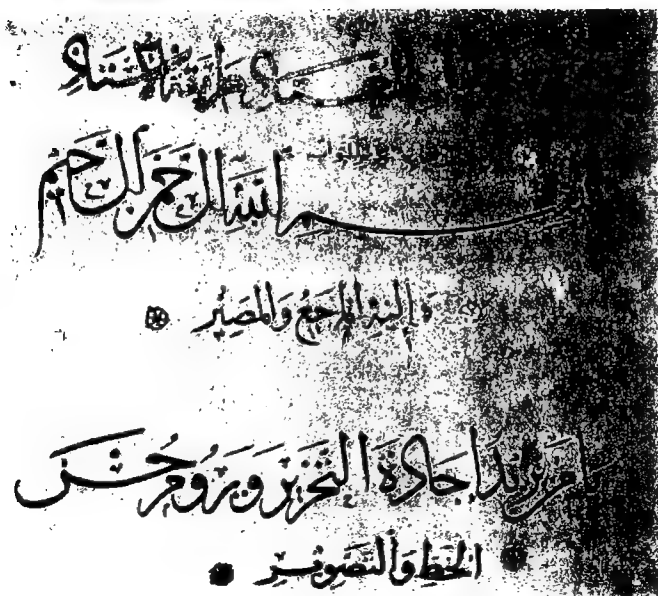 طريقة الاستاد
بسم الله الرحمن الرحيم
واليه المرجع والمصير
يا من يريد إجادة التحرير ويروم حسن
الخط والتصوير